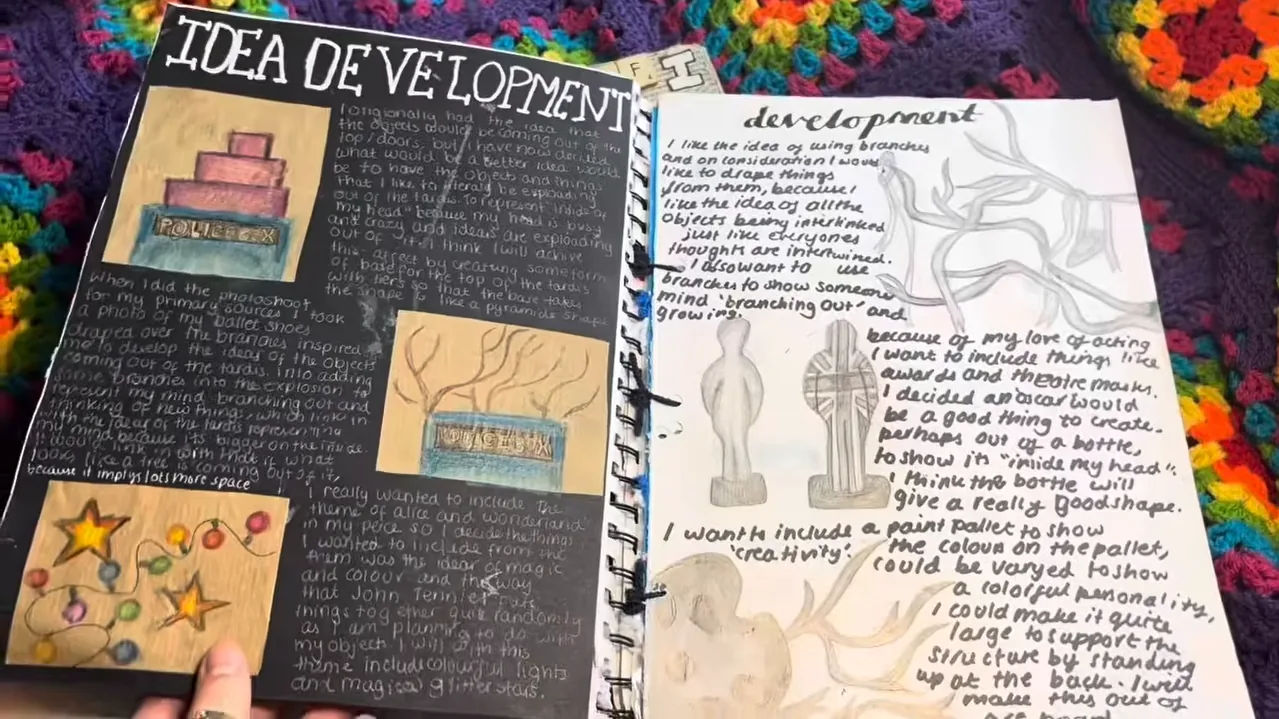 IDEA DEVELOPMENT
I origionally had the idea that
the objects would be coming out of the
top/doors, but I have now decided
what would be a better idea would
be to have the objects and things
that I like to literaly be exploading
out of the tardis. to represent "inside of
my head" because my head is busy
and crazy and ideas are exploading
out of it. I think I will achive
this affect by creating some form
of base for the top of the tardis
with tiers so that the base takes
the shape of like a pyramids shape
POLICE BOX
When I did the photoshoot
for my primary sources I took
a photo of my ballet shoes
draped over the branches inspired
me to develop the idear of the objects
coming out of the tardis. Into adding
some branches into the explosion to
represent my mind branching out and
thinking of new things, which links in
with the idear of the tardis representing
my mind because its bigger on the inside.
I would link in with that if what
looks like a tree is coming out of it,
because it implys lots more space
POLICE BOX
I really wanted to include the
theme of alice and wonderland
in my peice so I decide the things
I wanted to include from the
them was the idear of magic
and colour and the way
that John Tenniel puts
things together quite randomly
as I am planning to do with
my object. I will with this
theme include colourful lights
and magical glitter stars.
F. I
development
I like the idea of using branches
and on consideration I would
like to drape things
from them, because I
like the idea of all the
objects being interlinked
just like everyones
thoughts are intertwined.
I also want to use
branches to show someone
mind 'branching out' and
growing.
because of my love of acting
I want to include things like
awards and theatre masks.
I decided an oscar would
be a good thing to create.
perhaps out of a bottle,
to show its "inside my head".
I think the bottle will
give a really good shape.
I want to include a paint pallet to show
'creativity'. the colour on the pallet,
could be varyed to show
a colorful personality,
I could make it quite
large to support the
structure by standing
up at the back. I will
make this out of